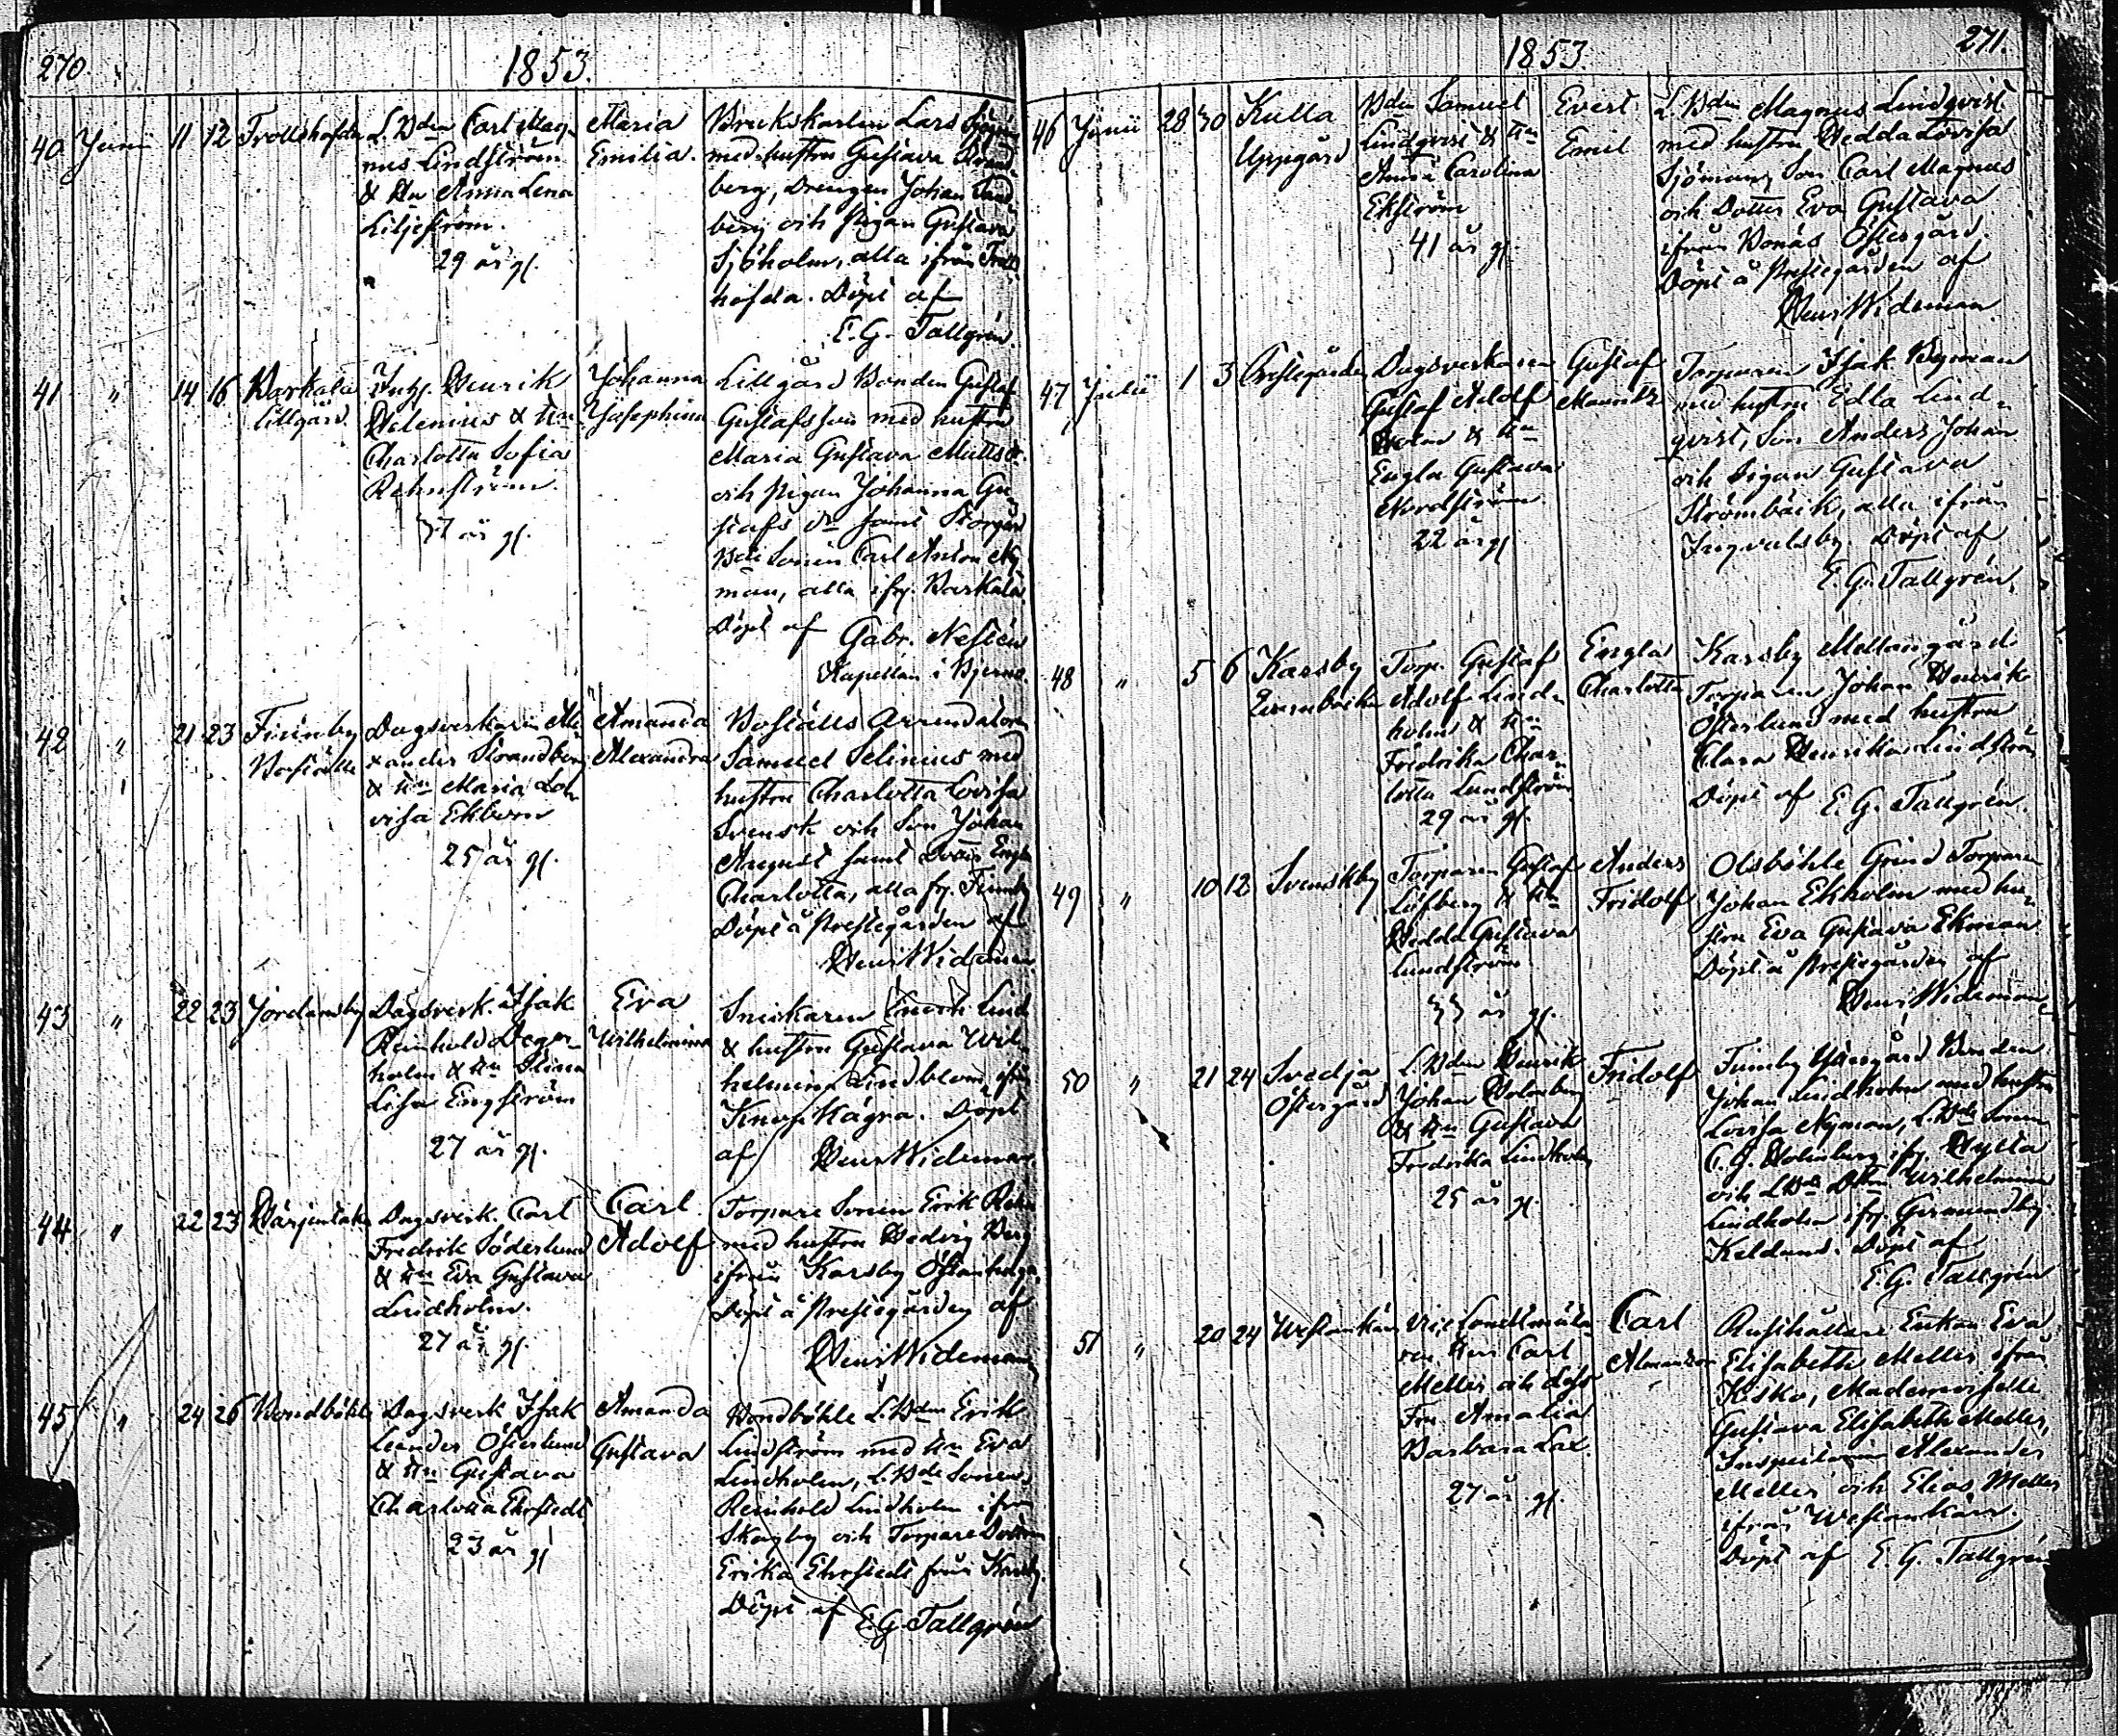 270.
1853.
40 Junii 11 12 Trollshofda L. Bden Carl Mag- Maria Brukskarlen Lars
nus Lindström Emilia. med hustru Gustava
& Hu Anna Lena berg, Drengen Johan Sand-
Liljeström. berg och Pigan Gustava
29 år gl. Sjöholm, alla ifrån Troll-
hofda. Döpt af
E. G. Tallgrén
41 " 14 16 Warkala Henrik Johanna Lillgård Bonden Gustaf
Lillgård Helenius & Hu Josephina Gustafsson med hustru
Charlotta Sofia Maria Gustava Matts dr
Rehnström. och pigan Johanna Gu-
37 år gl. stafs dr samt Storgård
Bde Sonen Carl Anton Ny-
man, alla ifr. Warkala.
Döpt af Gabr. Neslén
Kapellan i Bjerno.
42 " 21 23 Finnby Dagsverkaren Ale- Amanda Boställs Arrendatoren
Boställe xander Strandberg Alexandra Samuel Selinius med
& Hu Maria Lo- hustru Charlotta Lovisa
visa Ekbom Svensk och Son Johan
25 år gl. August samt Dotter Engla
Charlotta, alla fr. Finnby
Döpt å Prestegården af
Henr Wideman
43 " 22 23 Jordansby Dagsverk. Isak Eva Snickaren Enoch Lind
Reinhold Deger- Wilhelmina & hustru Gustava Wil-
holm & Hu Stina helmina Lindblom, ifrån
Lisa Engström Kägra. Döpt
27 år gl. af Henr Wideman.
44 " 22 23 Dagsverk. Carl Carl Torpare Sonen Erik
Fredrik Söderlund Adolf med hustru Hedvig Berg
& Hu Eva Gustava ifrån Karsby
Lindholm. Döpt å Prestegården af
27 år gl. Henr Wideman
45 " 24 26 Bondböhle Dagsverk Isak Amanda Bondböhle L. Bden Erik
Leander Österlund Gustava Lindström med Hu Eva
& Hu Gustava Lindholm, L. Bde Sonen
Charlotta Ehrstedt Reinhold Lindholm ifrån
23 år gl Skogby och Torpare Dottren
Erika Ehrstedt från Karsby.
Döpt af E. G. Tallgrén
1853.
271.
46 Junii 28 30 Kulla Bden Samuel Evert L. Bden Magnus Lindqvist
Uppgård Lindqvist & Hu Emil med hustru Hedda Lovisa
Anna Carolina Sjöman, Son Carl Magnus
Ekström och Dotter Eva Gustava
41 år gl. ifrån Bonäs Östergård.
Döpt å Prestegården af
Henr Wideman
47 Julii 1 3 Prestegården Dagsverkaren Gustaf Torparen Isak Nyman
Gustaf Adolf Mauritz med hustru Edla Lind-
& Hu qvist, Son Anders Johan
Engla Gustava och Pigan Gustava
Nordström Strömbäck, alla ifrån
22 år gl Ingvalsby. Döpt af
E. G. Tallgrén.
48 " 5 6 Karsby Torp. Gustaf Engla Karsby Mellangård
Adolf Lind- Charlotta Torparen Johan Henrik
holm & Hu Österlund med hustru
Fredrika Char- Clara Henrika Lindström
lotta Lundström Döpt af E. G. Tallgrén.
29 år gl.
49 " 10 12 Svenskby Torparen Gustaf Anders Olsböhle Grind Torparen
Löfberg & Hu Fridolf Johan Ekholm med hu-
Hedda Gustava stru Eva Gustava Ekman
Lundström Döpt å Prestegården af
33 år gl. Henr Wideman
50 " 21 24 Svedja L. Bden Henrik Fridolf Finnby Bonden
Östergård Johan Holmberg Johan Lindholm med hustru
& Hu Gustava Lovisa Nyman, L. Bde Sonen
Fredrika Lindholm C. G. Holmberg ifr.
25 år gl. och L. Bde Dttrn Wilhelmina
Lindholm ifr. Germundby
Keldand. Döpt af
E. G. Tallgrén
51 " 20 24 Westankärr Vice Landtmäta- Carl Rusthållare Enkan Eva
ren Carl Elisabeth Meller ifrån
Meller och dess Kisko, Mademoiselle
Fru Amalia Gustava Elisabeth Meller,
Barbara Lax. Inspectoren Alexander
27 år gl. Meller och Elias Meller
ifrån Westankärr.
Döpt af E. G. Tallgrén